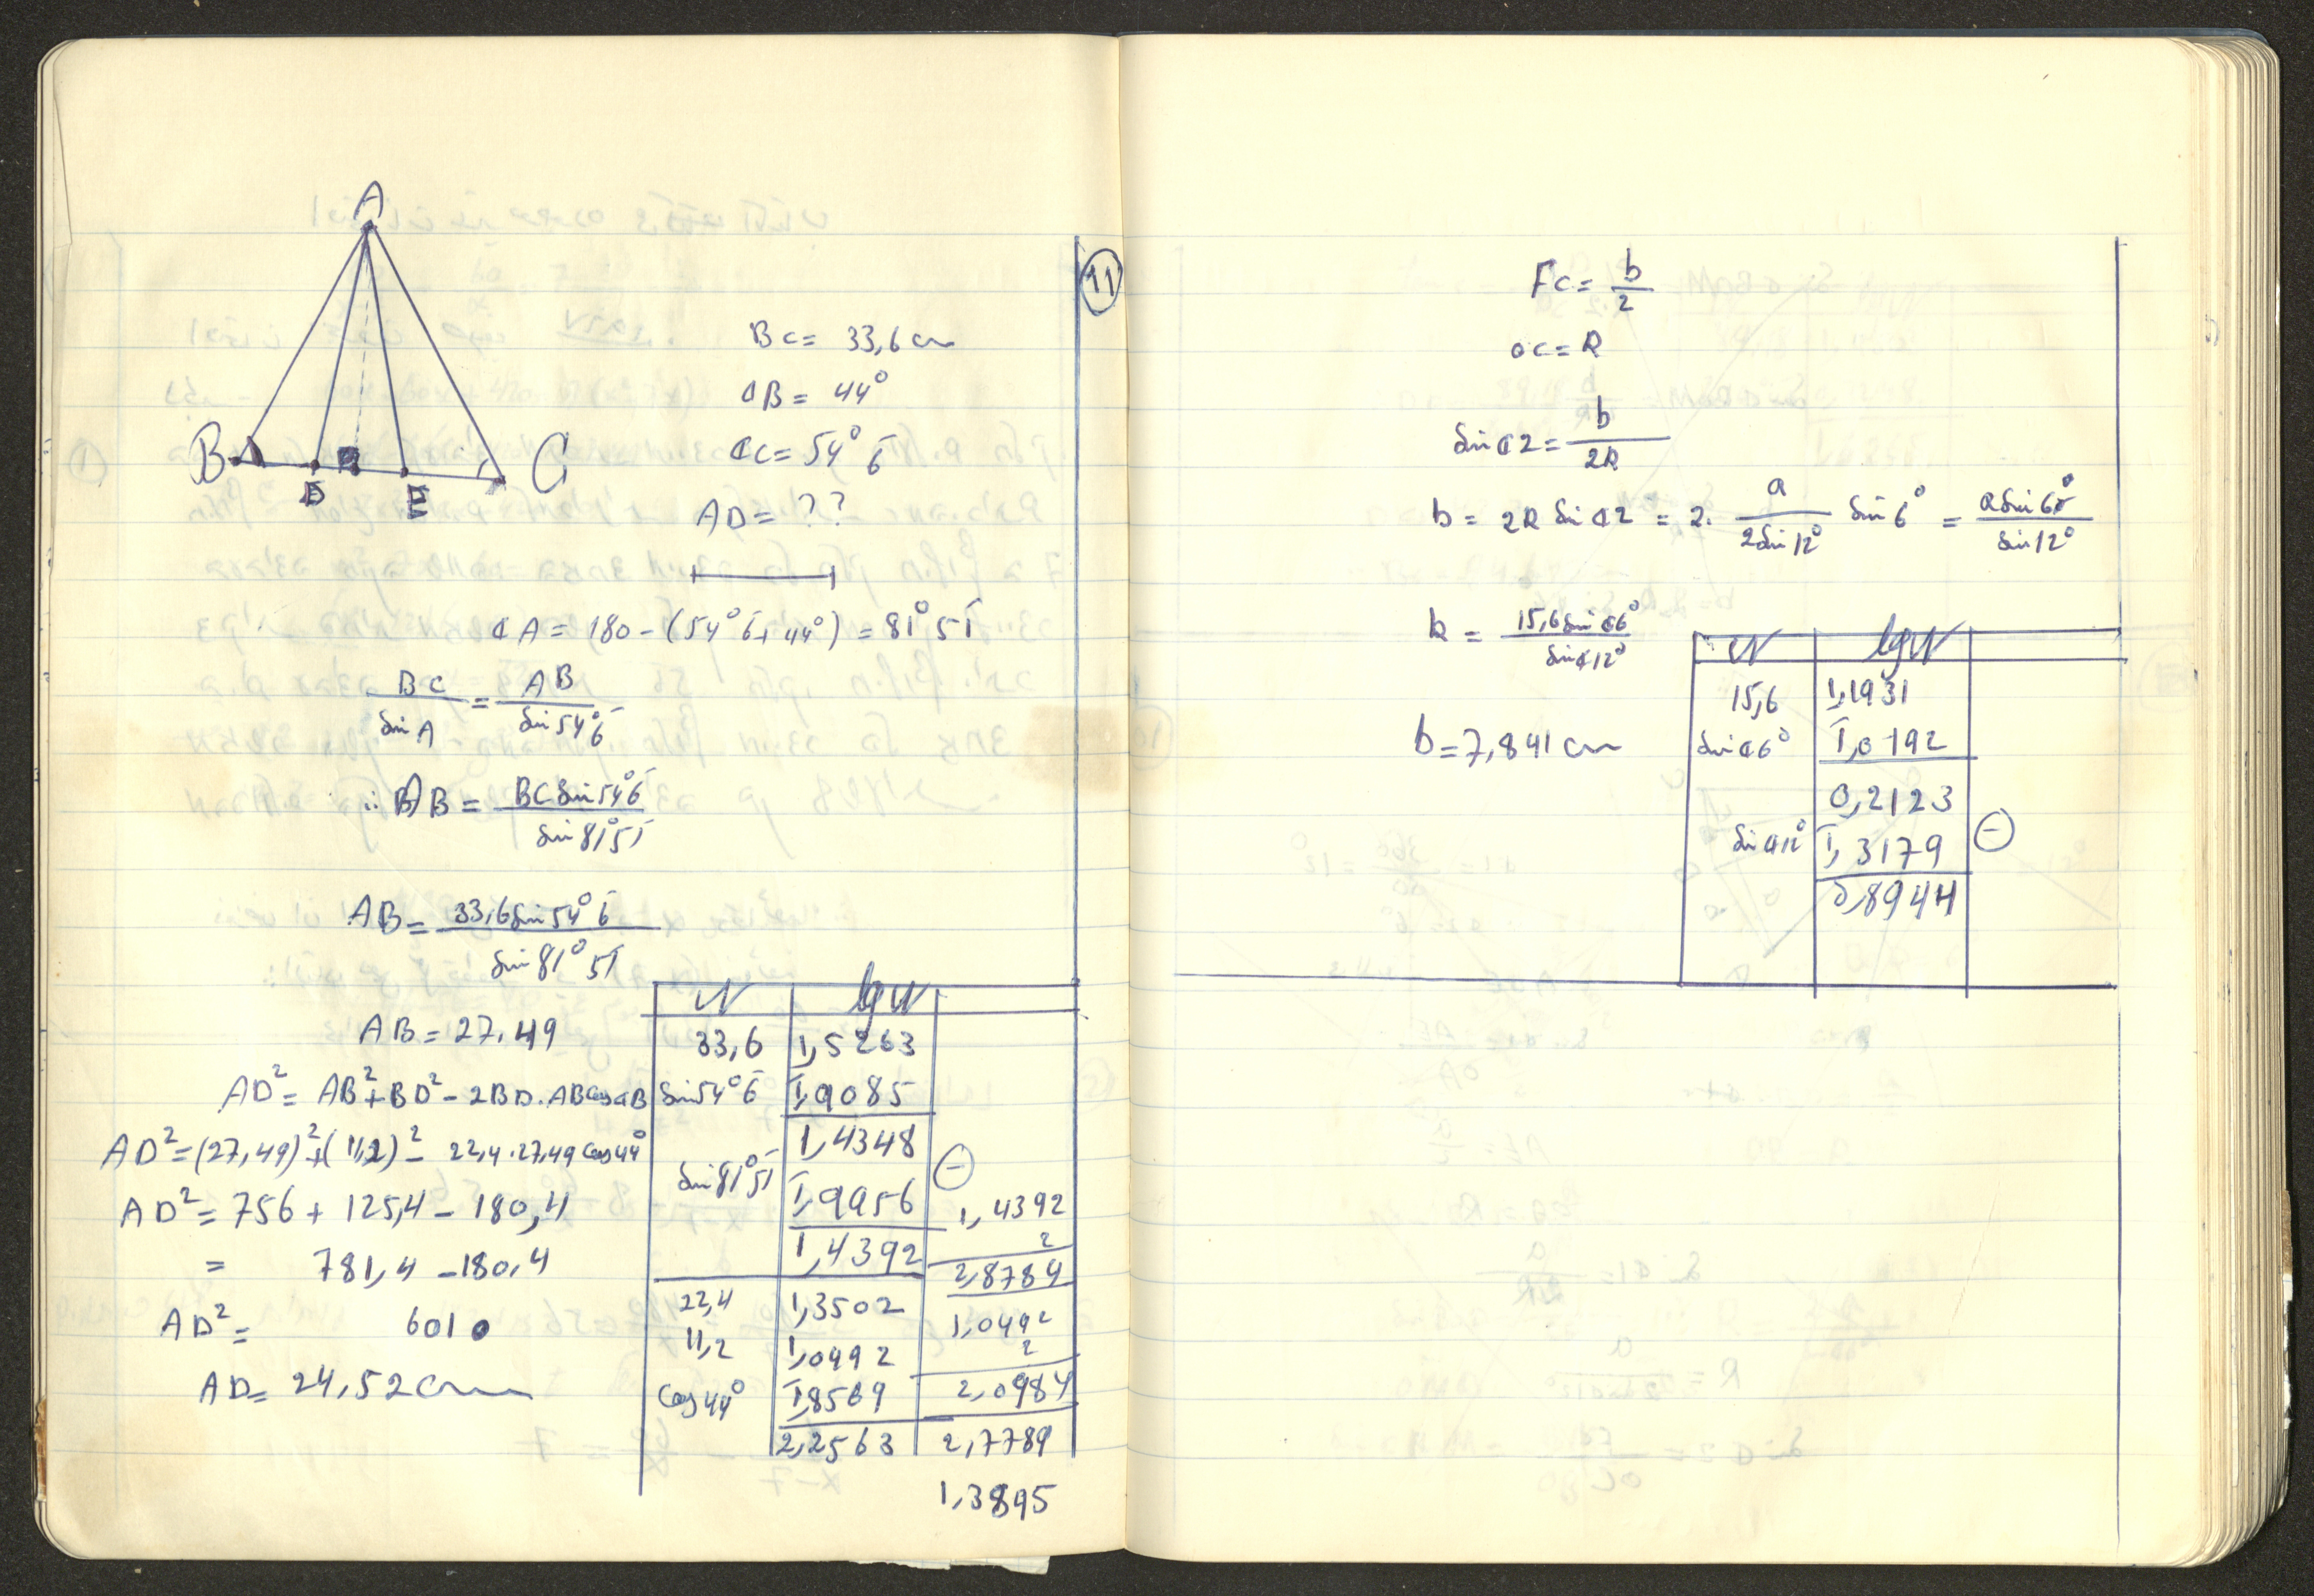 A
B
D
E
C
11
BC = 33,6 cm
∢B = 44°
∢C = 54° 6'
AD = ??
∢A = 180 - (54° 6' + 44°) = 81° 51'
BC / Sin A = AB / Sin 54° 6'
∴ AB = BC Sin 54° 6' / Sin 81° 51'
AB = 33,6 Sin 54° 6' / Sin 81° 51'
AB = 27,49
AD² = AB² + BD² - 2BD . AB Cos ∢B
AD² = (27,49)² + (11,2)² - 22,4 . 27,49 Cos 44°
AD² = 756 + 125,4 - 180,4
= 781,4 - 180,4
AD² = 601,0
AD = 24,52 cm
N lg N
33,6 1,5263
Sin 54° 6' 1̄,9085
1,4348
Sin 81° 51' 1̄,9956 (-)
1,4392
22,4 1,3502
11,2 1,0492
Cos 44° 1̄,8569
2,2563
1,4392
2
2,8784
1,0492
2
2,0984
2,7789
1,3895
FC = b / 2
OC = R
Sin ∢2 = b / 2R
b = 2R Sin ∢2 = 2 . a / 2 Sin 12° Sin 6° = a Sin 6° / Sin 12°
b = 15,6 Sin ∢6° / Sin ∢12°
b = 7,841 cm
N lg N
15,6 1,1931
Sin ∢6° 1̄,0192
0,2123
Sin ∢12° 1̄,3179 (-)
0,8944